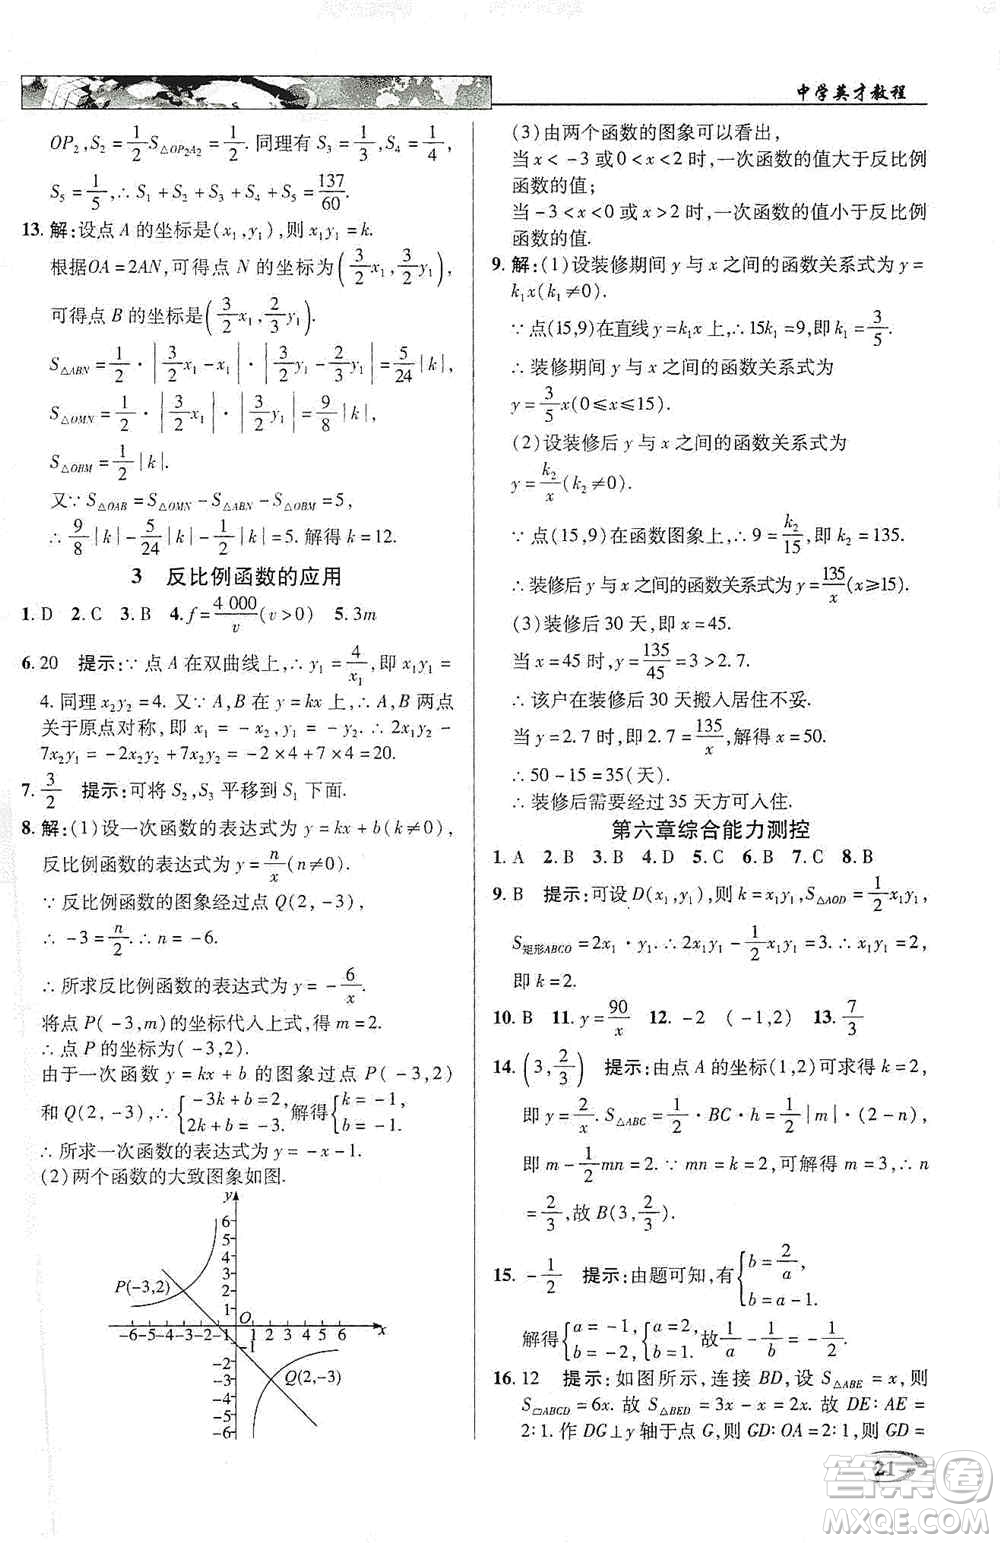 中学英才教程
OP₂,S₂=S△OP₂A₂=1/2. 同理有 S₃=1/3,S₄=1/4,
S₅=1/5,∴S₁+S₂+S₃+S₄+S₅=137/60.
13.解:设点 A 的坐标是(x₁,y₁),则 x₁y₁=k.
根据OA=2AN,可得点 N 的坐标为(3/2x₁,3/2y₁),
可得点 B 的坐标是(3/2x₁,2/3y₁).
S△ABN=1/2·|3/2x₁-x₁|·|3/2y₁-2/3y₁|=5/24|k|,
S△OMN=1/2·|3/2x₁|·|3/2y₁|=9/8|k|,
S△OBM=1/2|k|.
又∵S△OAB=S△OMN-S△ABN-S△OBM=5,
∴9/8|k|-5/24|k|-1/2|k|=5. 解得 k=12.
3 反比例函数的应用
1.D 2.C 3.B 4.f=4 000/v(v>0) 5.3m
6.20 提示:∵点 A 在双曲线上,∴y₁=4/x₁,即 x₁y₁=
4. 同理 x₂y₂=4. 又∵A,B 在 y=kx 上,∴A,B 两点
关于原点对称,即 x₁=-x₂,y₁=-y₂. ∴2x₁y₂-
7x₂y₁=-2x₂y₂+7x₂y₂=-2×4+7×4=20.
7.3/2 提示:可将 S₂,S₃ 平移到 S₁ 下面.
8.解:(1)设一次函数的表达式为 y=kx+b(k≠0),
反比例函数的表达式为 y=n/x(n≠0).
∵反比例函数的图象经过点 Q(2,-3),
∴-3=n/2.∴n=-6.
∴所求反比例函数的表达式为 y=-6/x.
将点 P(-3,m)的坐标代入上式,得 m=2.
∴点 P 的坐标为(-3,2).
由于一次函数 y=kx+b 的图象过点 P(-3,2)
和 Q(2,-3),∴{-3k+b=2, 2k+b=-3. 解得{k=-1, b=-1.
∴所求一次函数的表达式为 y=-x-1.
(2)两个函数的大致图象如图.
y
6
5
4
3
2
1
P(-3,2)
O
-6-5-4-3-2-1 1 2 3 4 5 6 x
-1
-2
-3
-4
-5
-6
Q(2,-3)
(3)由两个函数的图象可以看出,
当 x<-3 或 0<x<2 时,一次函数的值大于反比例
函数的值;
当-3<x<0 或 x>2 时,一次函数的值小于反比例
函数的值.
9.解:(1)设装修期间 y 与 x 之间的函数关系式为 y=
k₁x(k₁≠0).
∵点(15,9)在直线 y=k₁x 上,∴15k₁=9,即 k₁=3/5.
∴装修期间 y 与 x 之间的函数关系式为
y=3/5x(0≤x≤15).
(2)设装修后 y 与 x 之间的函数关系式为
y=k₂/x(k₂≠0).
∵点(15,9)在函数图象上,∴9=k₂/15,即 k₂=135.
∴装修后 y 与 x 之间的函数关系式为 y=135/x(x≥15).
(3)装修后 30 天,即 x=45.
当 x=45 时,y=135/45=3>2.7.
∴该户在装修后 30 天搬人居住不妥.
当 y=2.7 时,即 2.7=135/x,解得 x=50.
∴50-15=35(天).
∴装修后需要经过 35 天方可入住.
第六章综合能力测控
1.A 2.B 3.B 4.D 5.C 6.B 7.C 8.B
9.B 提示:可设 D(x₁,y₁),则 k=x₁y₁,S△AOD=1/2x₁y₁,
S矩形ABCO=2x₁·y₁. ∴2x₁y₁-1/2x₁y₁=3. ∴x₁y₁=2,
即 k=2.
10.B 11.y=90/x 12.-2 (-1,2) 13.7/3
14.(3,2/3) 提示:由点 A 的坐标(1,2)可求得 k=2,
即 y=2/x. S△ABC=1/2·BC·h=1/2|m|·(2-n),
即 m-1/2mn=2. ∵mn=k=2,解得 m=3,∴n
=2/3,故 B(3,2/3).
15.-1/2 提示:由题可知,有{b=2/a, b=a-1.
解得{a=-1, b=-2. {a=2, b=1. 故1/a-1/b=-1/2.
16.12 提示:如图所示,连接 BD,设 S△ABE=x,则
S▱ABCD=6x. 故 S△BED=3x-x=2x. 故 DE:AE=
2:1. 作 DG⊥y 轴于点 G,则 GD:OA=2:1,则 GD=
21
答案圈